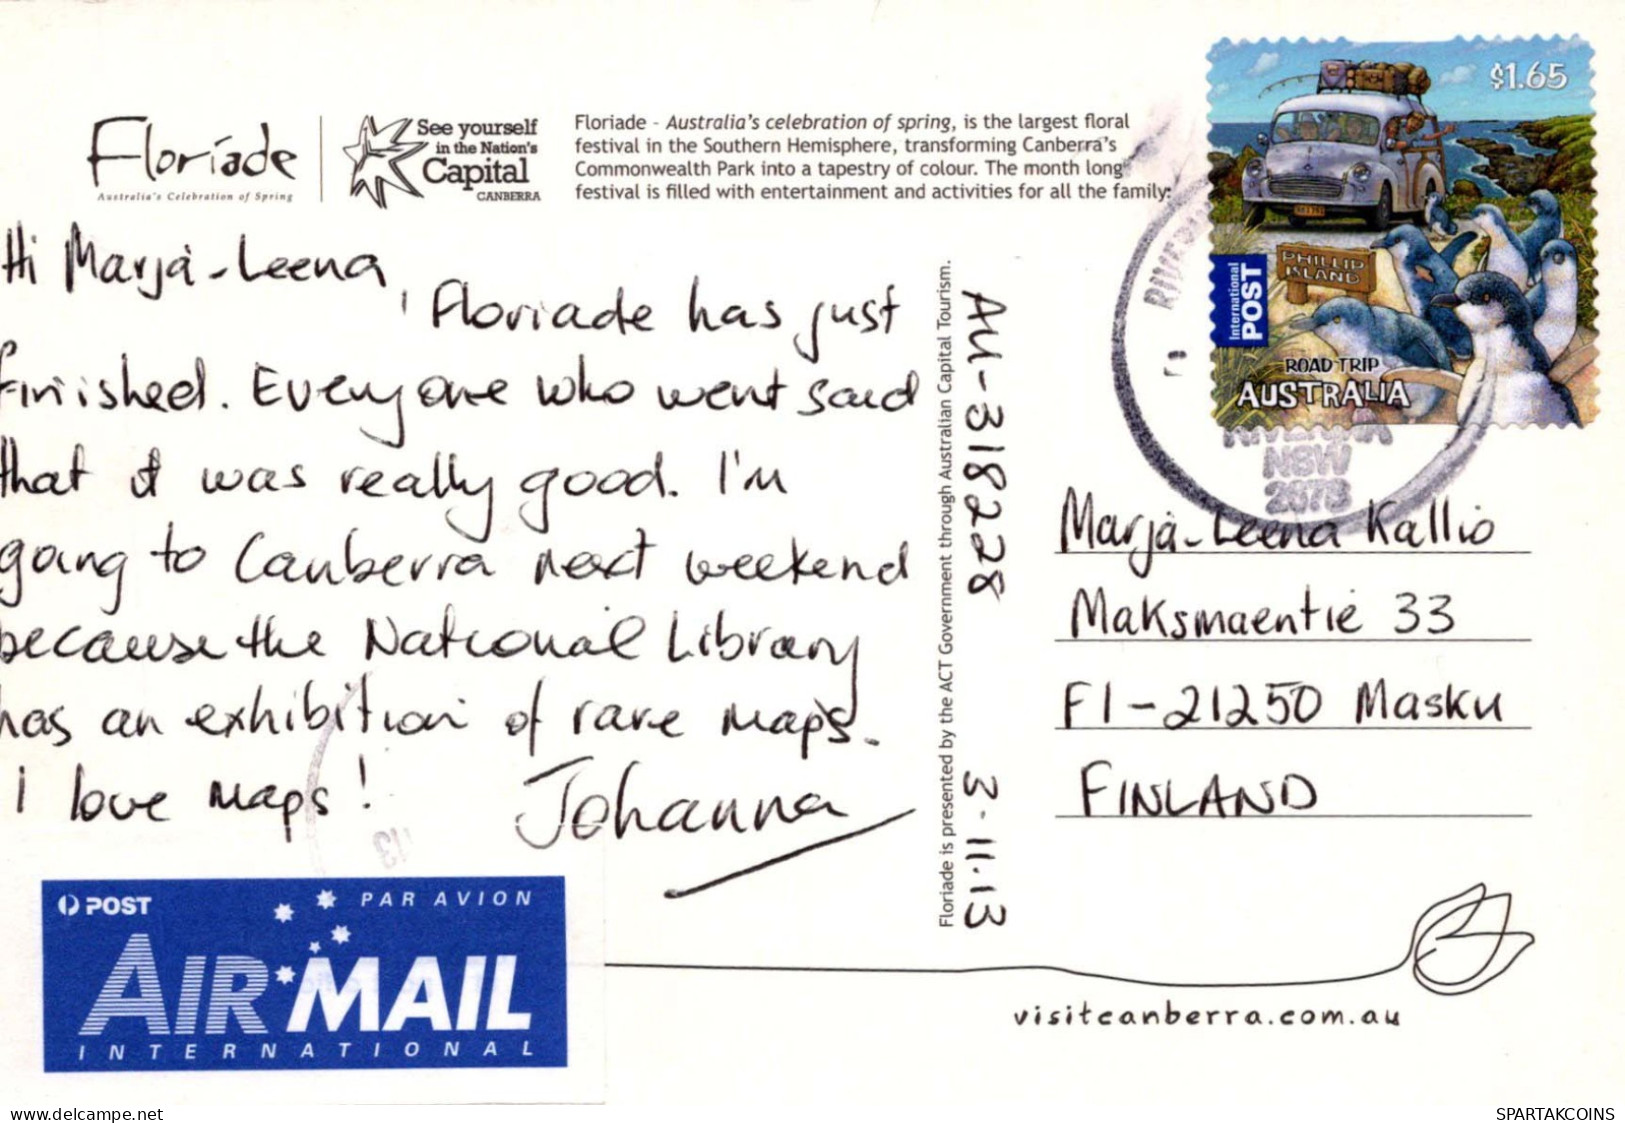 Floriade
Australia's Celebration of Spring
See yourself
in the Nation's
Capital
CANBERRA
Floriade - Australia's celebration of spring, is the largest floral
festival in the Southern Hemisphere, transforming Canberra's
Commonwealth Park into a tapestry of colour. The month long
festival is filled with entertainment and activities for all the family.
Hi Marja-Leena,
Floriade has just
finished. Everyone who went said
that it was really good. I'm
going to Canberra next weekend
because the National Library
has an exhibition of rare maps.
I love maps!
Johanna
POST
PAR AVION
AIR MAIL
INTERNATIONAL
Floriade is presented by the ACT Government through Australian Capital Tourism.
AU-318228
3-11.13
$1.65
PHILLIP
ISLAND
International
POST
ROAD TRIP
AUSTRALIA
RIVERINA
NSW
2678
Marja-Leena Kallio
Maksmaentie 33
FI-21250 Masku
FINLAND
visitcanberra.com.au
www.delcampe.net
SPARTAKCOINS